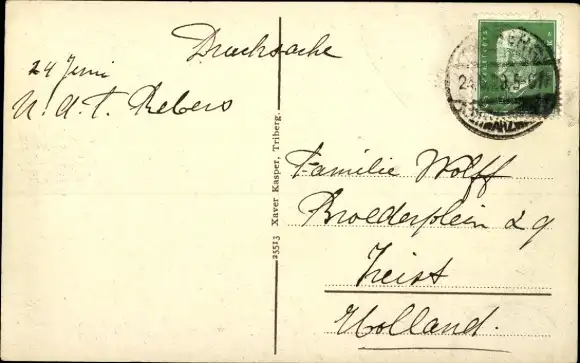 Drucksache
24 Juni
U. A. T. Rebers
23513 Xaver Kasper, Triberg.
Familie Wolff
Broederplein 29
Zeist
Holland.